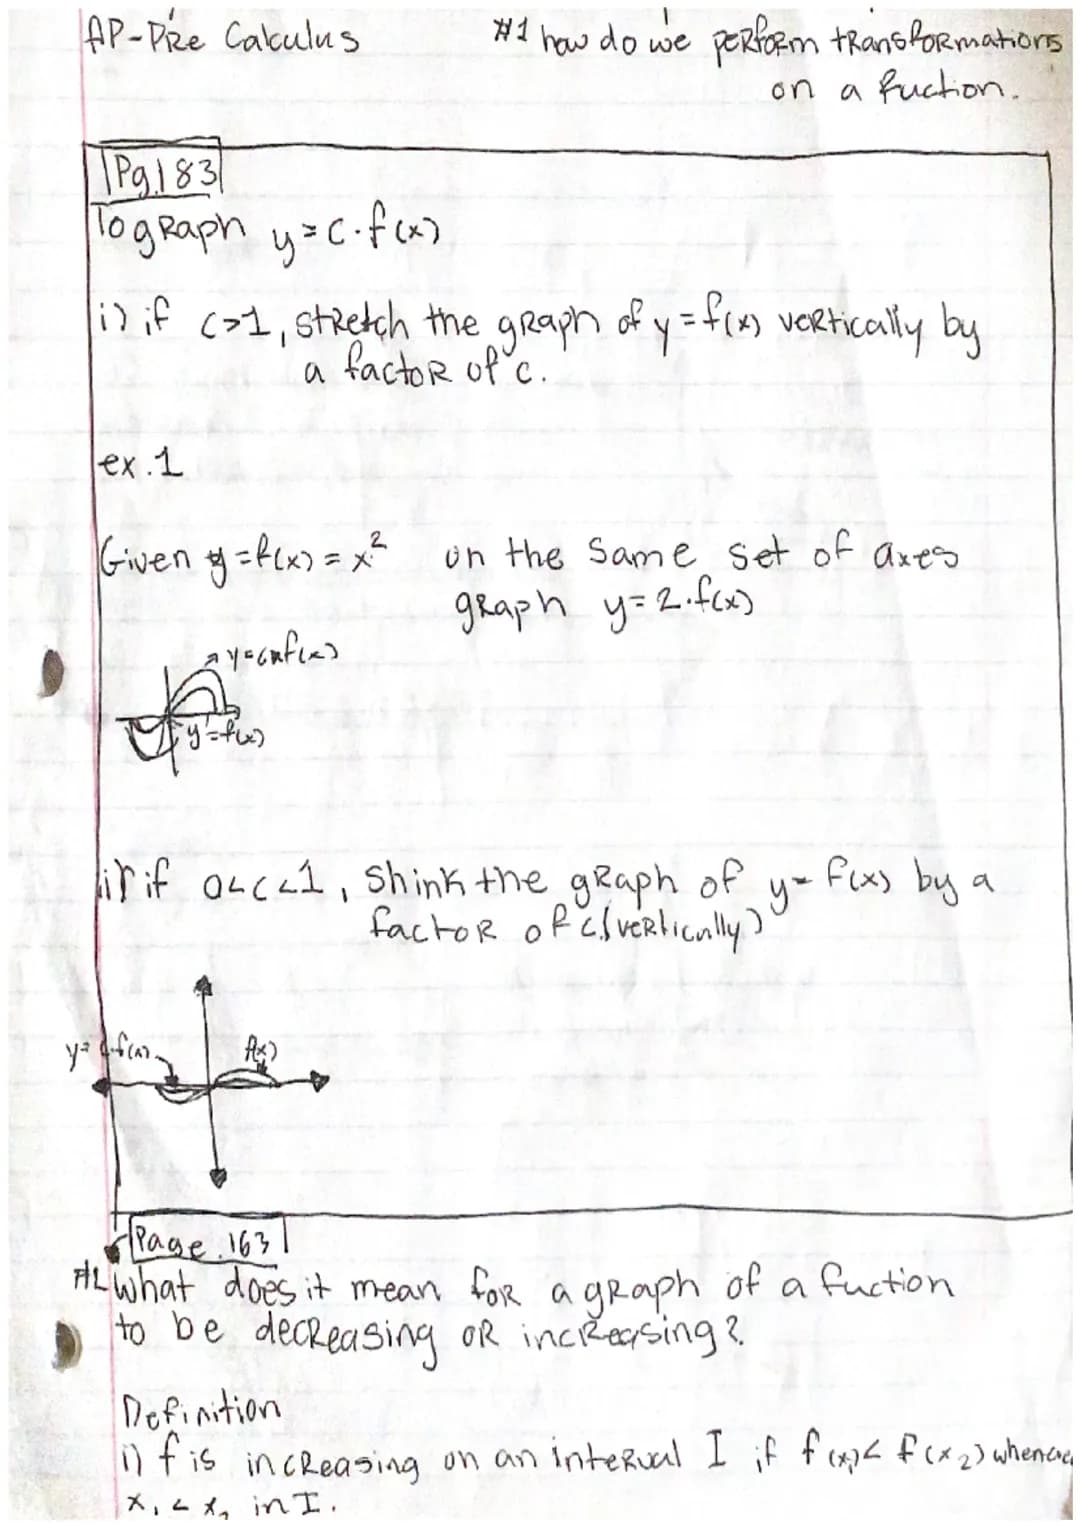 AP-Pre Calculus
#1 how do we perform transformations
on a fuction.
Pg.183
To graph y = c·f(x)
i) if c>1, stretch the graph of y = f(x) vertically by
a factor of c.
ex.1
Given y = f(x) = x² on the same set of axes
graph y = 2·f(x)
y=f(x)
ii) if 0<c<1, shink the graph of y = f(x) by a
factor of c (vertically)
f(x)
Page 163
What does it mean for a graph of a fuction
to be decreasing or increasing?
Definition
i) f is increasing on an interval I if f(x₁) < f(x₂) whenever
x₁ < x₂ in I.